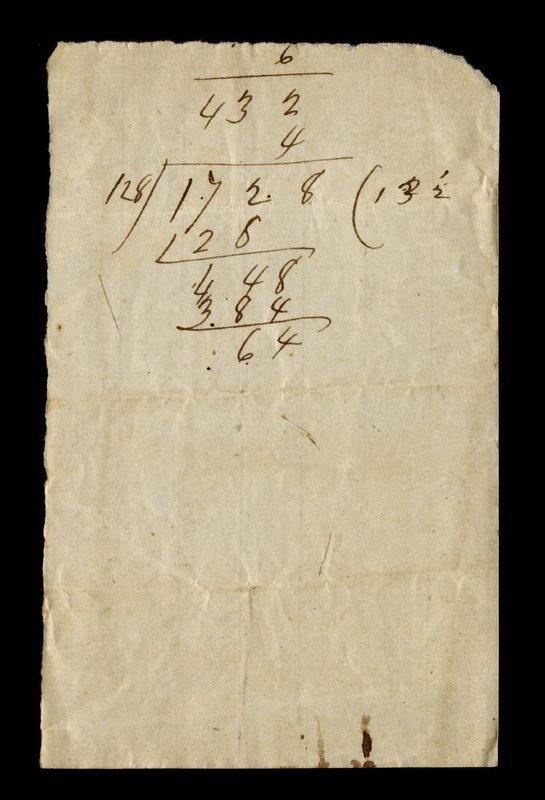 6
432
4
128)1728(13½
128
448
384
64